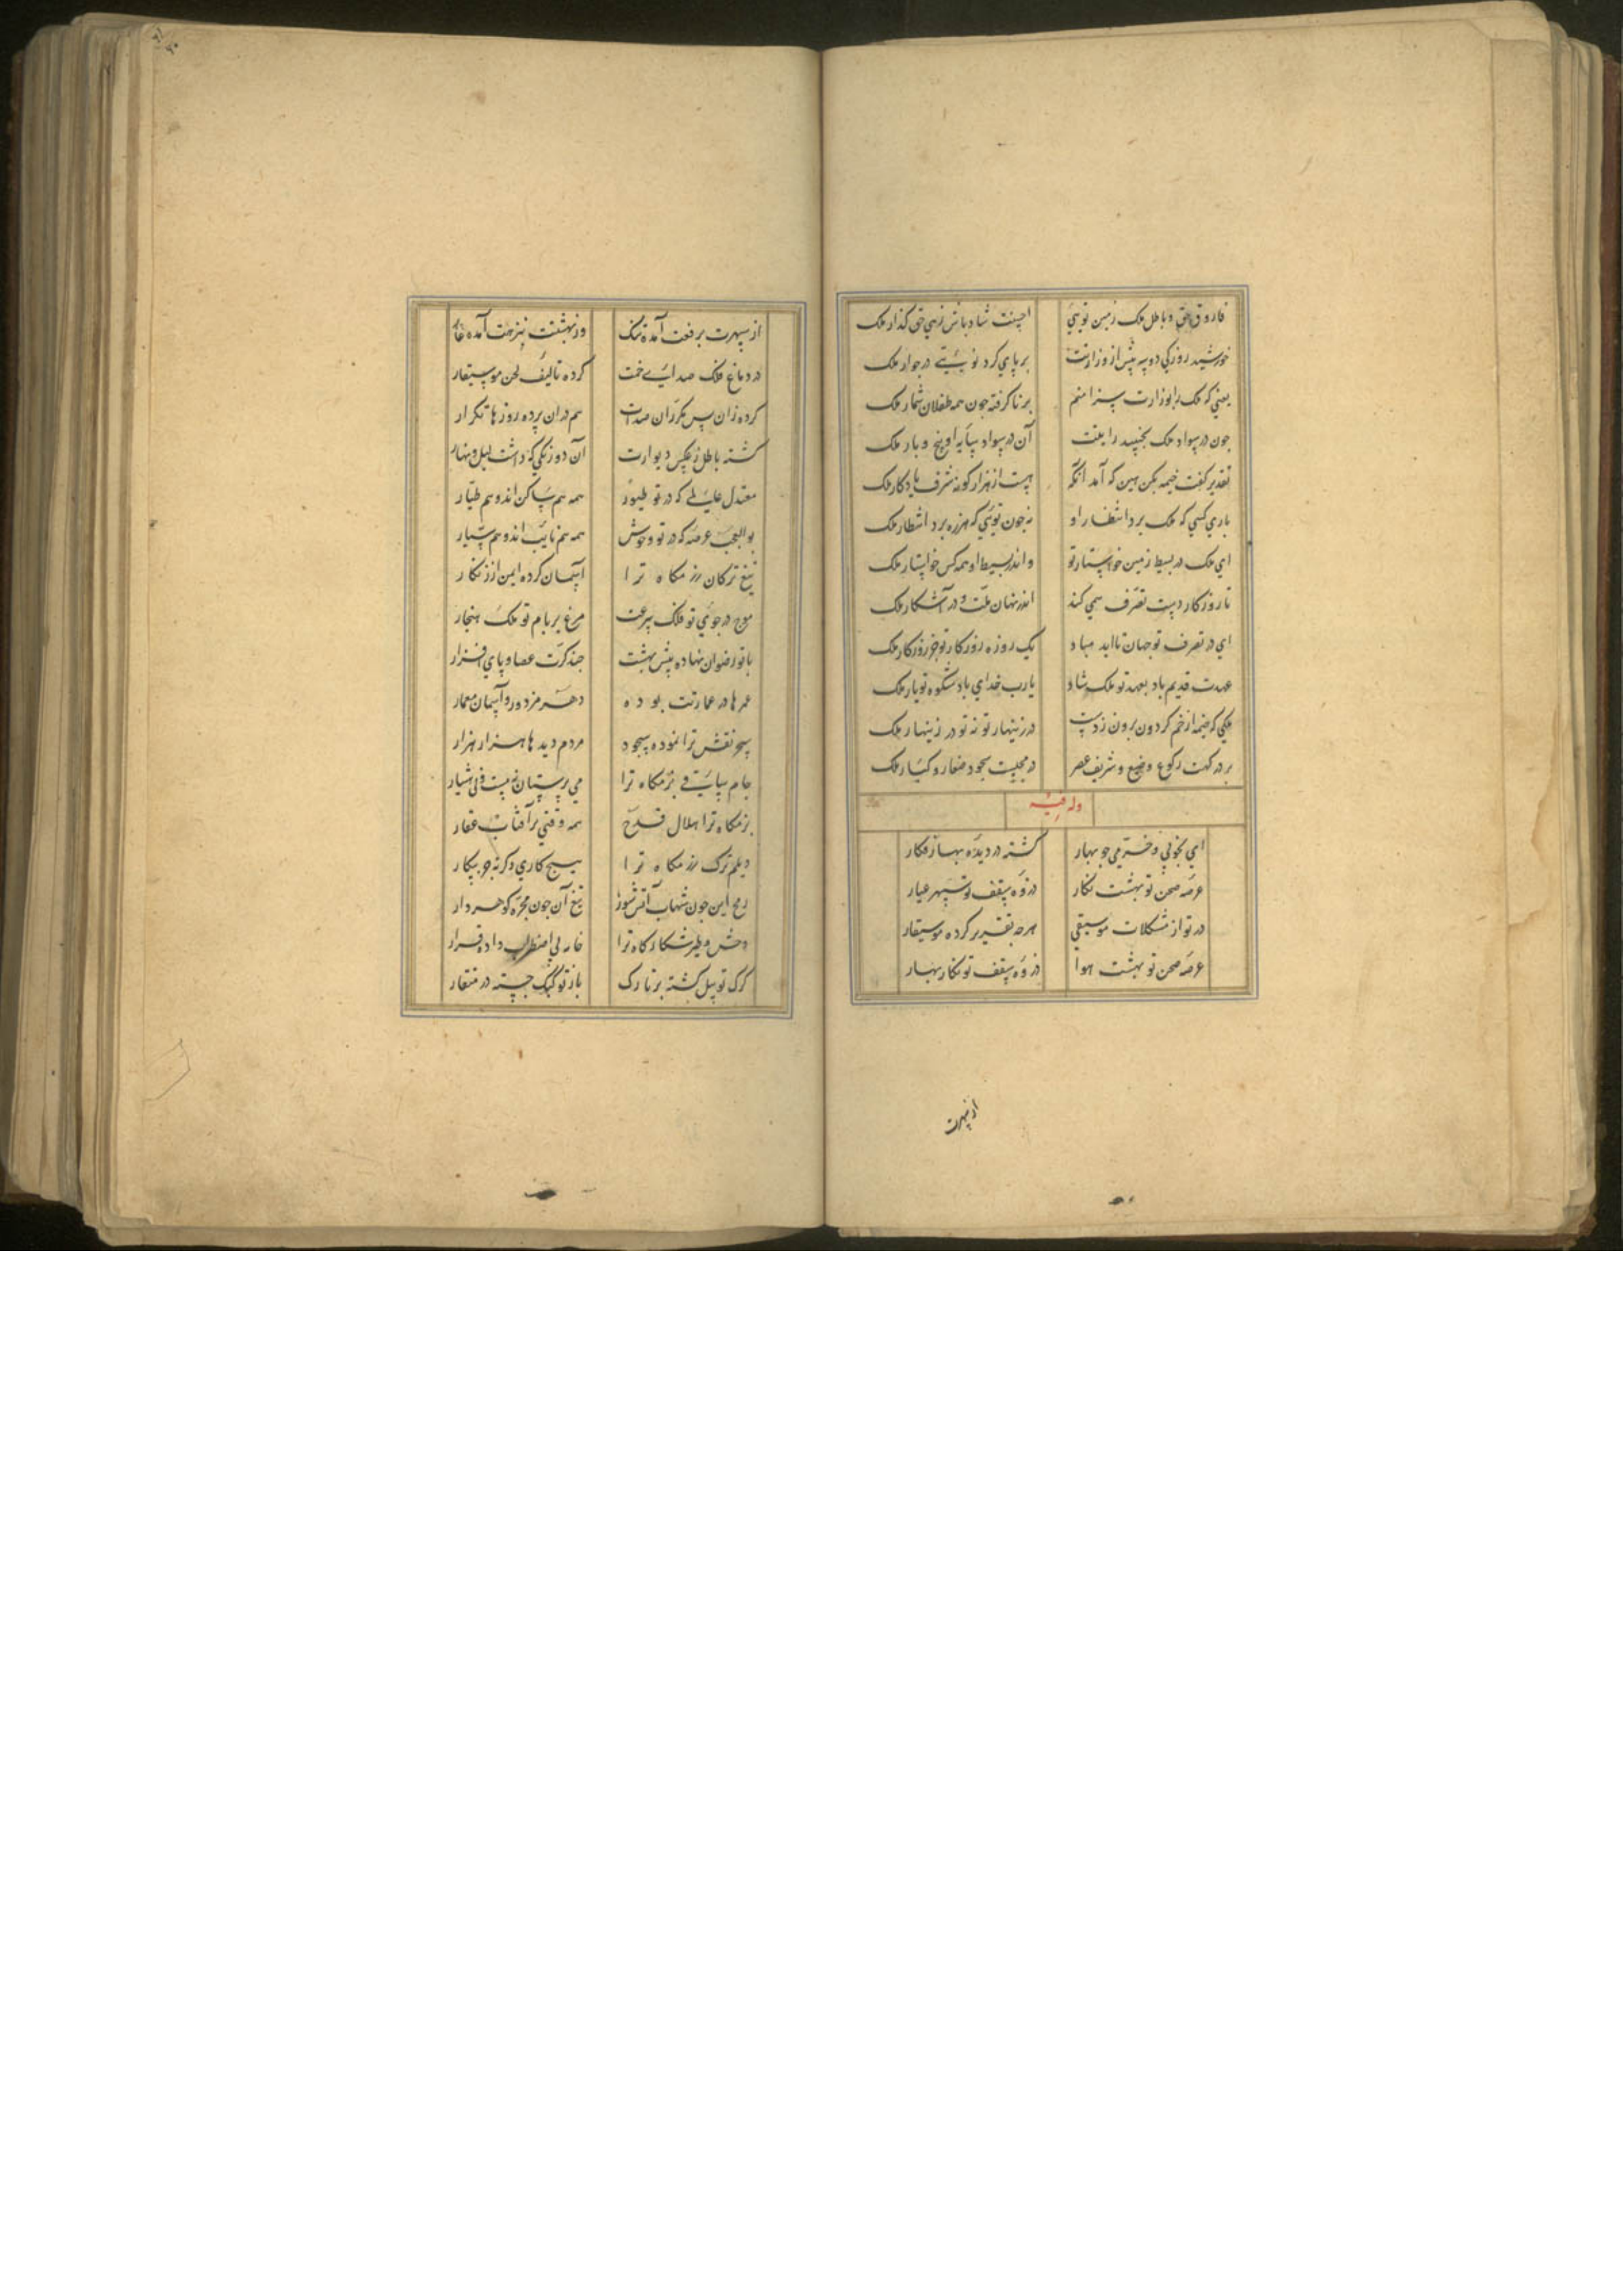 فاروق حق و باطل ملک زمین تویی احسنت شاد باش زهی حق گذار ملک
خورشید روزکی دو سه پیش از وزارتت بر پای کرد نوبتیی در جوار ملک
یعنی که ملک را بوزارت سزا منم برنا گرفته چون همه طفلان شمار ملک
چون در سواد ملک بجنبید رایتت آن در سواد سایه او پنج و بار ملک
تقدیر گفت خیمه بکن هین که آمد آنکه هست از هزار گونه شرف یادگار ملک
باری کسی که ملک برد انتظار او نه چون تویی که هرزه برد انتظار ملک
ای ملک در بسیط زمین خواستار تو واندر بسیط او همه کس خواستار ملک
تا روزکار دست تصرف همی کند اندر نهان ملت و در آشکار ملک
ای در تصرف تو جهان تا ابد مباد یک روزه روزکار تو جز روزکار ملک
عهدت قدیم باد بعهد تو ملک شاد یارب خدای باد شکوه تو یار ملک
ملکی که خیمه از خم کردون برون زدست در زینهار تو نه تو در زینهار ملک
بر درکهت رکوع وضیع و شریف عصر در مجلست سجود صغار و کبار ملک
وله فیه
ای بخوبی و خرمی چو بهار کشته در دیده بهار نکار
عرصه صحن تو بهشت نکار ذروه سقف تو سپهر عیار
در تو از مشکلات موسیقی هرچه تقریر کرده موسیقار
عرصه صحن تو بهشت هوا ذروه سقف تو نکار بهار
از سپهرت
از سپهرت برفعت آمده ننک وز بهشتت بنزهت آمده عار
در دماغ فلک صدای خمت کرده تالیف لحن موسیقار
کرده زان پس مکرران صدات هم دران پرده روزها تکرار
کشته باطل ز عکس دیوارت آن دو رنکی که داشت لیل و نهار
معتدل عالمی که در تو طیور همه هم ساکن اند و هم طیار
بوالعجب عرصه که در تو وحوش همه هم ثابت اند و هم سیار
تیغ ترکان رزمکاه ترا آسمان کرده ایمن از زنکار
موج در جوی تو فلک سرعت مرغ بر بام تو ملک هنجار
با تو رضوان نهاده پیش بهشت چند کرت عصا و پای افزار
عمرها در عمارتت بوده دهر مزدور و آسمان معمار
سحر نقش ترا نموده سجود مردم دیدها هزار هزار
جام ساقی بزمکاه ترا می پرستان نه مست و نی هشیار
بزمکاه ترا هلال قدح همه وقتی پر آفتاب عقار
دیلم و ترک رزمکاه ترا هیچ کاری دکر نه جز پیکار
رمح این چون شهاب آتش سوز تیغ آن چون مجره کوهردار
وحش و طیر شکارکاه ترا خامه بی اضطراب داده قرار
کرک تو پیل کشته بر تارک باز تو کبک جسته در منقار